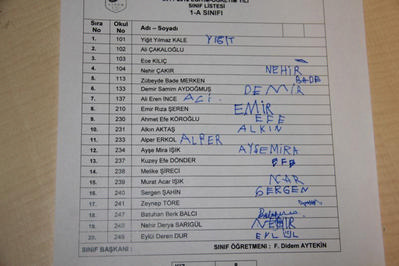 SINIF LİSTESİ
1-A SINIFI
Sıra No Okul No Adı – Soyadı
1. 101 Yiğit Yılmaz KALE YİĞİT
2. 102 Ali ÇAKALOĞLU
3. 103 Ece KILIÇ
4. 104 Nehir ÇAKIR NEHİR
5. 113 Zübeyde Bade MERKEN BADE
6. 133 Demir Samim AYDOĞMUŞ DEMİR
7. 137 Ali Eren İNCE ALİ
8. 210 Emir Rıza ŞEREN EMİR
9. 230 Ahmet Efe KÖROĞLU EFE
10. 231 Alkın AKTAŞ ALKIN
11. 233 Alper ERKOL ALPER
12. 234 Ayşe Mira IŞIK AYŞEMİRA
13. 237 Kuzey Efe DÖNDER EFE
14. 238 Melike ŞİRECİ
15. 239 Murat Acar IŞIK
16. 240 Sergen ŞAHİN SERGEN
17. 241 Zeynep TÖRE
18. 247 Batuhan Berk BALCI
19. 248 Nehir Derya SARIGÜL NEHİR
20. 249 Eylül Deren DUR EYLÜL
SINIF BAŞKANI : SINIF ÖĞRETMENİ : F. Didem AYTEKİN